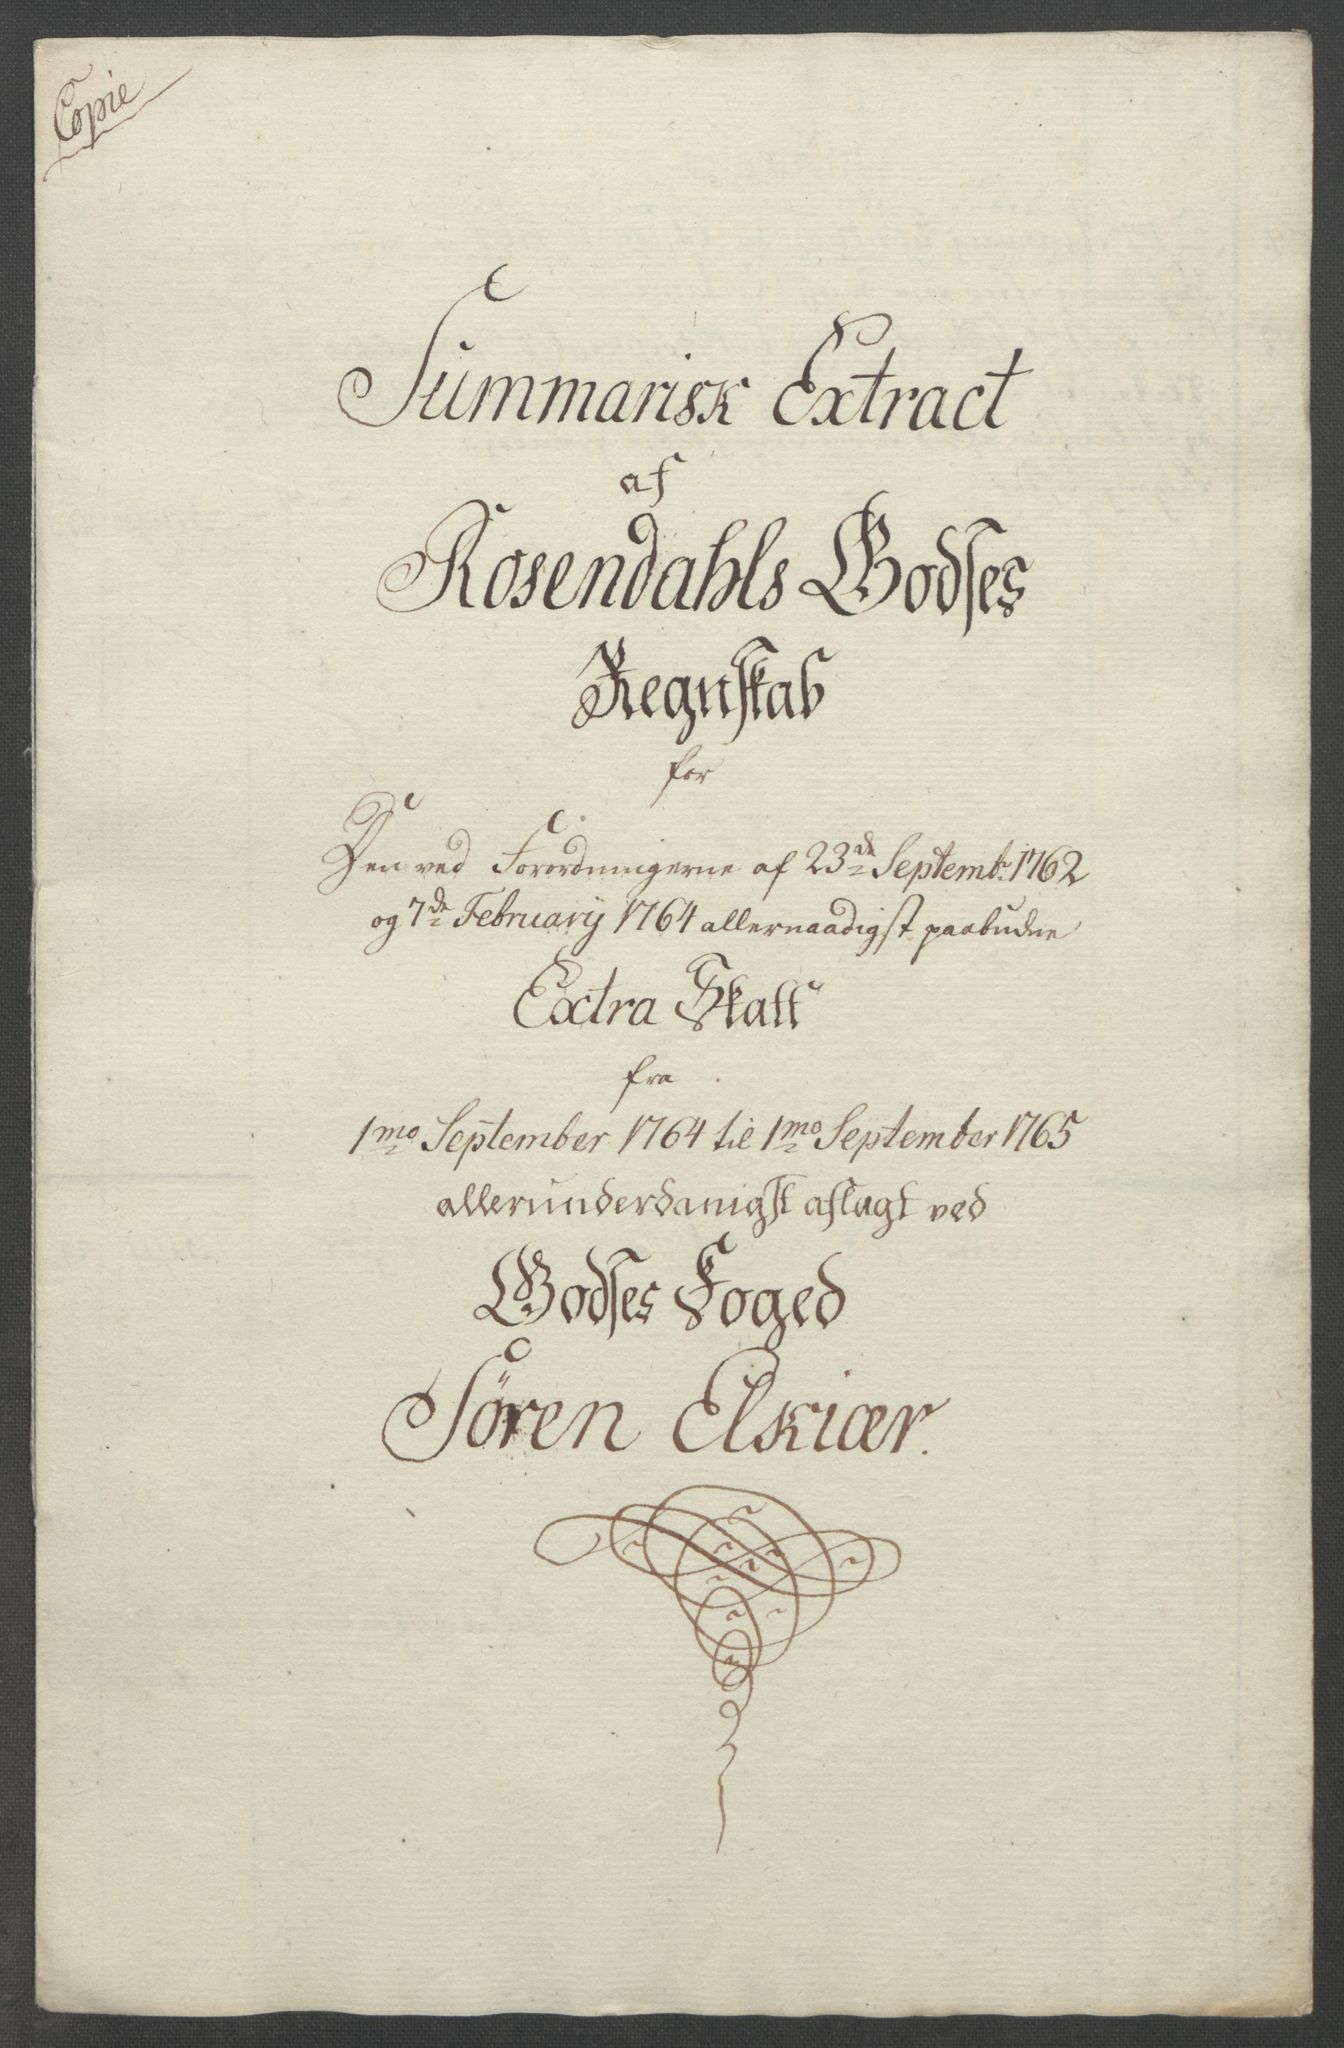 Copie
Summarisk Extract
af
Rosendahls Godses
Regnskab
for
Den ved Forordningerne af 23de Septembr. 1762
og 7de Februarÿ 1764 allernaadigst paabudne
Extra Skatt
fra
1mo September 1764 til 1mo September 1765
allerunderdanigst aflagt ved
Godses Foged
Sören Elskiær.